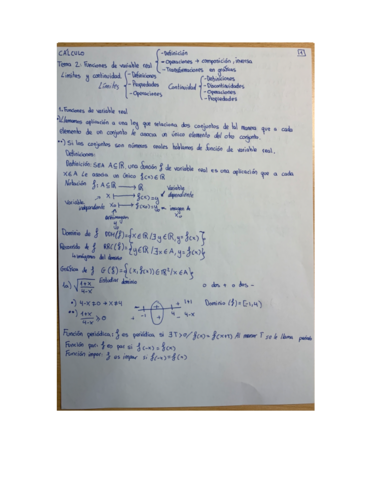 CÁLCULO
Tema 2: Funciones de variable real
Límites y continuidad
- Definición
- Operaciones → composición, inversa
- Transformaciones en gráficas
Límites
- Definiciones
- Propiedades
- Operaciones
Continuidad
- Definiciones
- Discontinuidades
- Operaciones
- Propiedades
1
1. Funciones de variable real
Llamamos aplicación a una ley que relaciona dos conjuntos de tal manera que a cada
elemento de un conjunto le asocia un único elemento del otro conjunto.
Si los conjuntos son números reales hablamos de función de variable real.
Definiciones:
Definición: Sea A⊆ℝ, una función f de variable real es una aplicación que a cada
x∈A le asocia un único f(x)∈ℝ
Notación f: A⊆ℝ → ℝ
x ↦ f(x)=y
Variable dependiente
Variable independiente
x₀ ↦ f(x₀)=y₀ → imagen de x₀
antiimagen y₀
Dominio de f: DOM(f)={x∈ℝ/∃y∈ℝ, y=f(x)}
Recorrido de f: REC(f)={y∈ℝ/∃x∈A, y=f(x)}
Gráfica de f G(f)={(x,f(x))∈ℝ²/x∈A}
Estudiar dominio
1a) √(1+x / 4-x)
o dos + o dos -
*) 4-x≠0 → x≠4
- + + 1+x
-1 4
+ + - 4-x
Dominio (f)=[-1,4)
**) 1+x / 4-x ≥0
Función periódica: f es periódica si ∃T>0 / f(x)=f(x+T) Al menor T se le llama periodo
Función par: f es par si f(-x)=f(x)
Función impar: f es impar si f(-x)=-f(x)